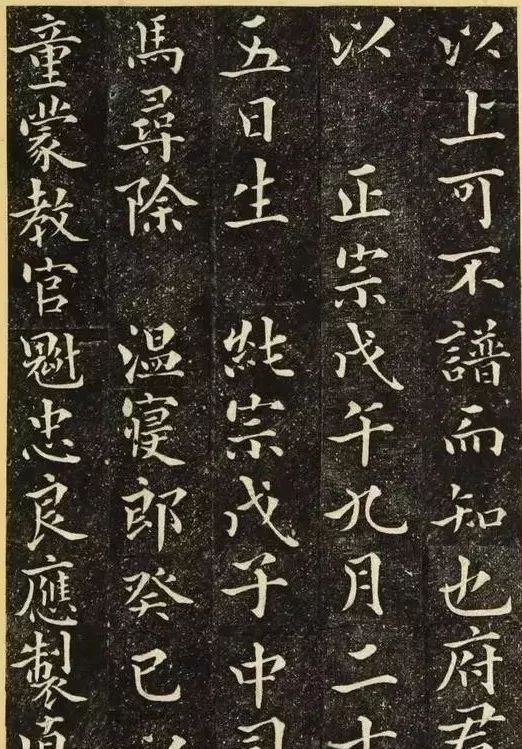 以上可不譜而知也府君
以 正宗戊午九月二十
五日生 純宗戊子中司
馬尋除 温寝郎癸巳
童蒙教官魁忠良應製直